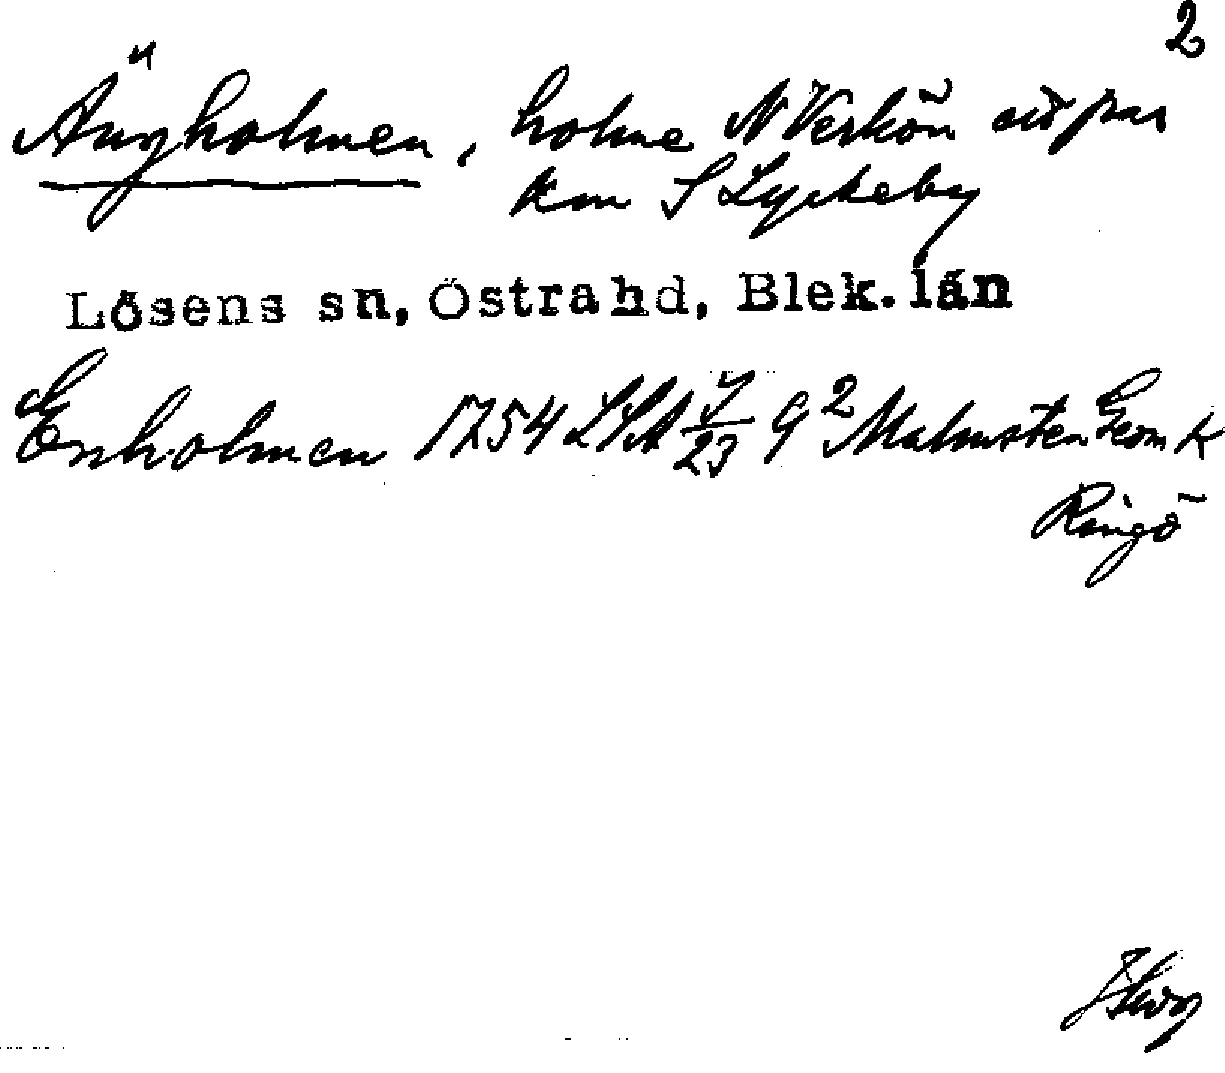 2
Ängholmen, holme N Verkön ett par
km S Lyckeby
Lösens sn, Östra hd, Blek. län
Enholmen 1754 LSA I/23 9² Malmsten Geom K
Ringö